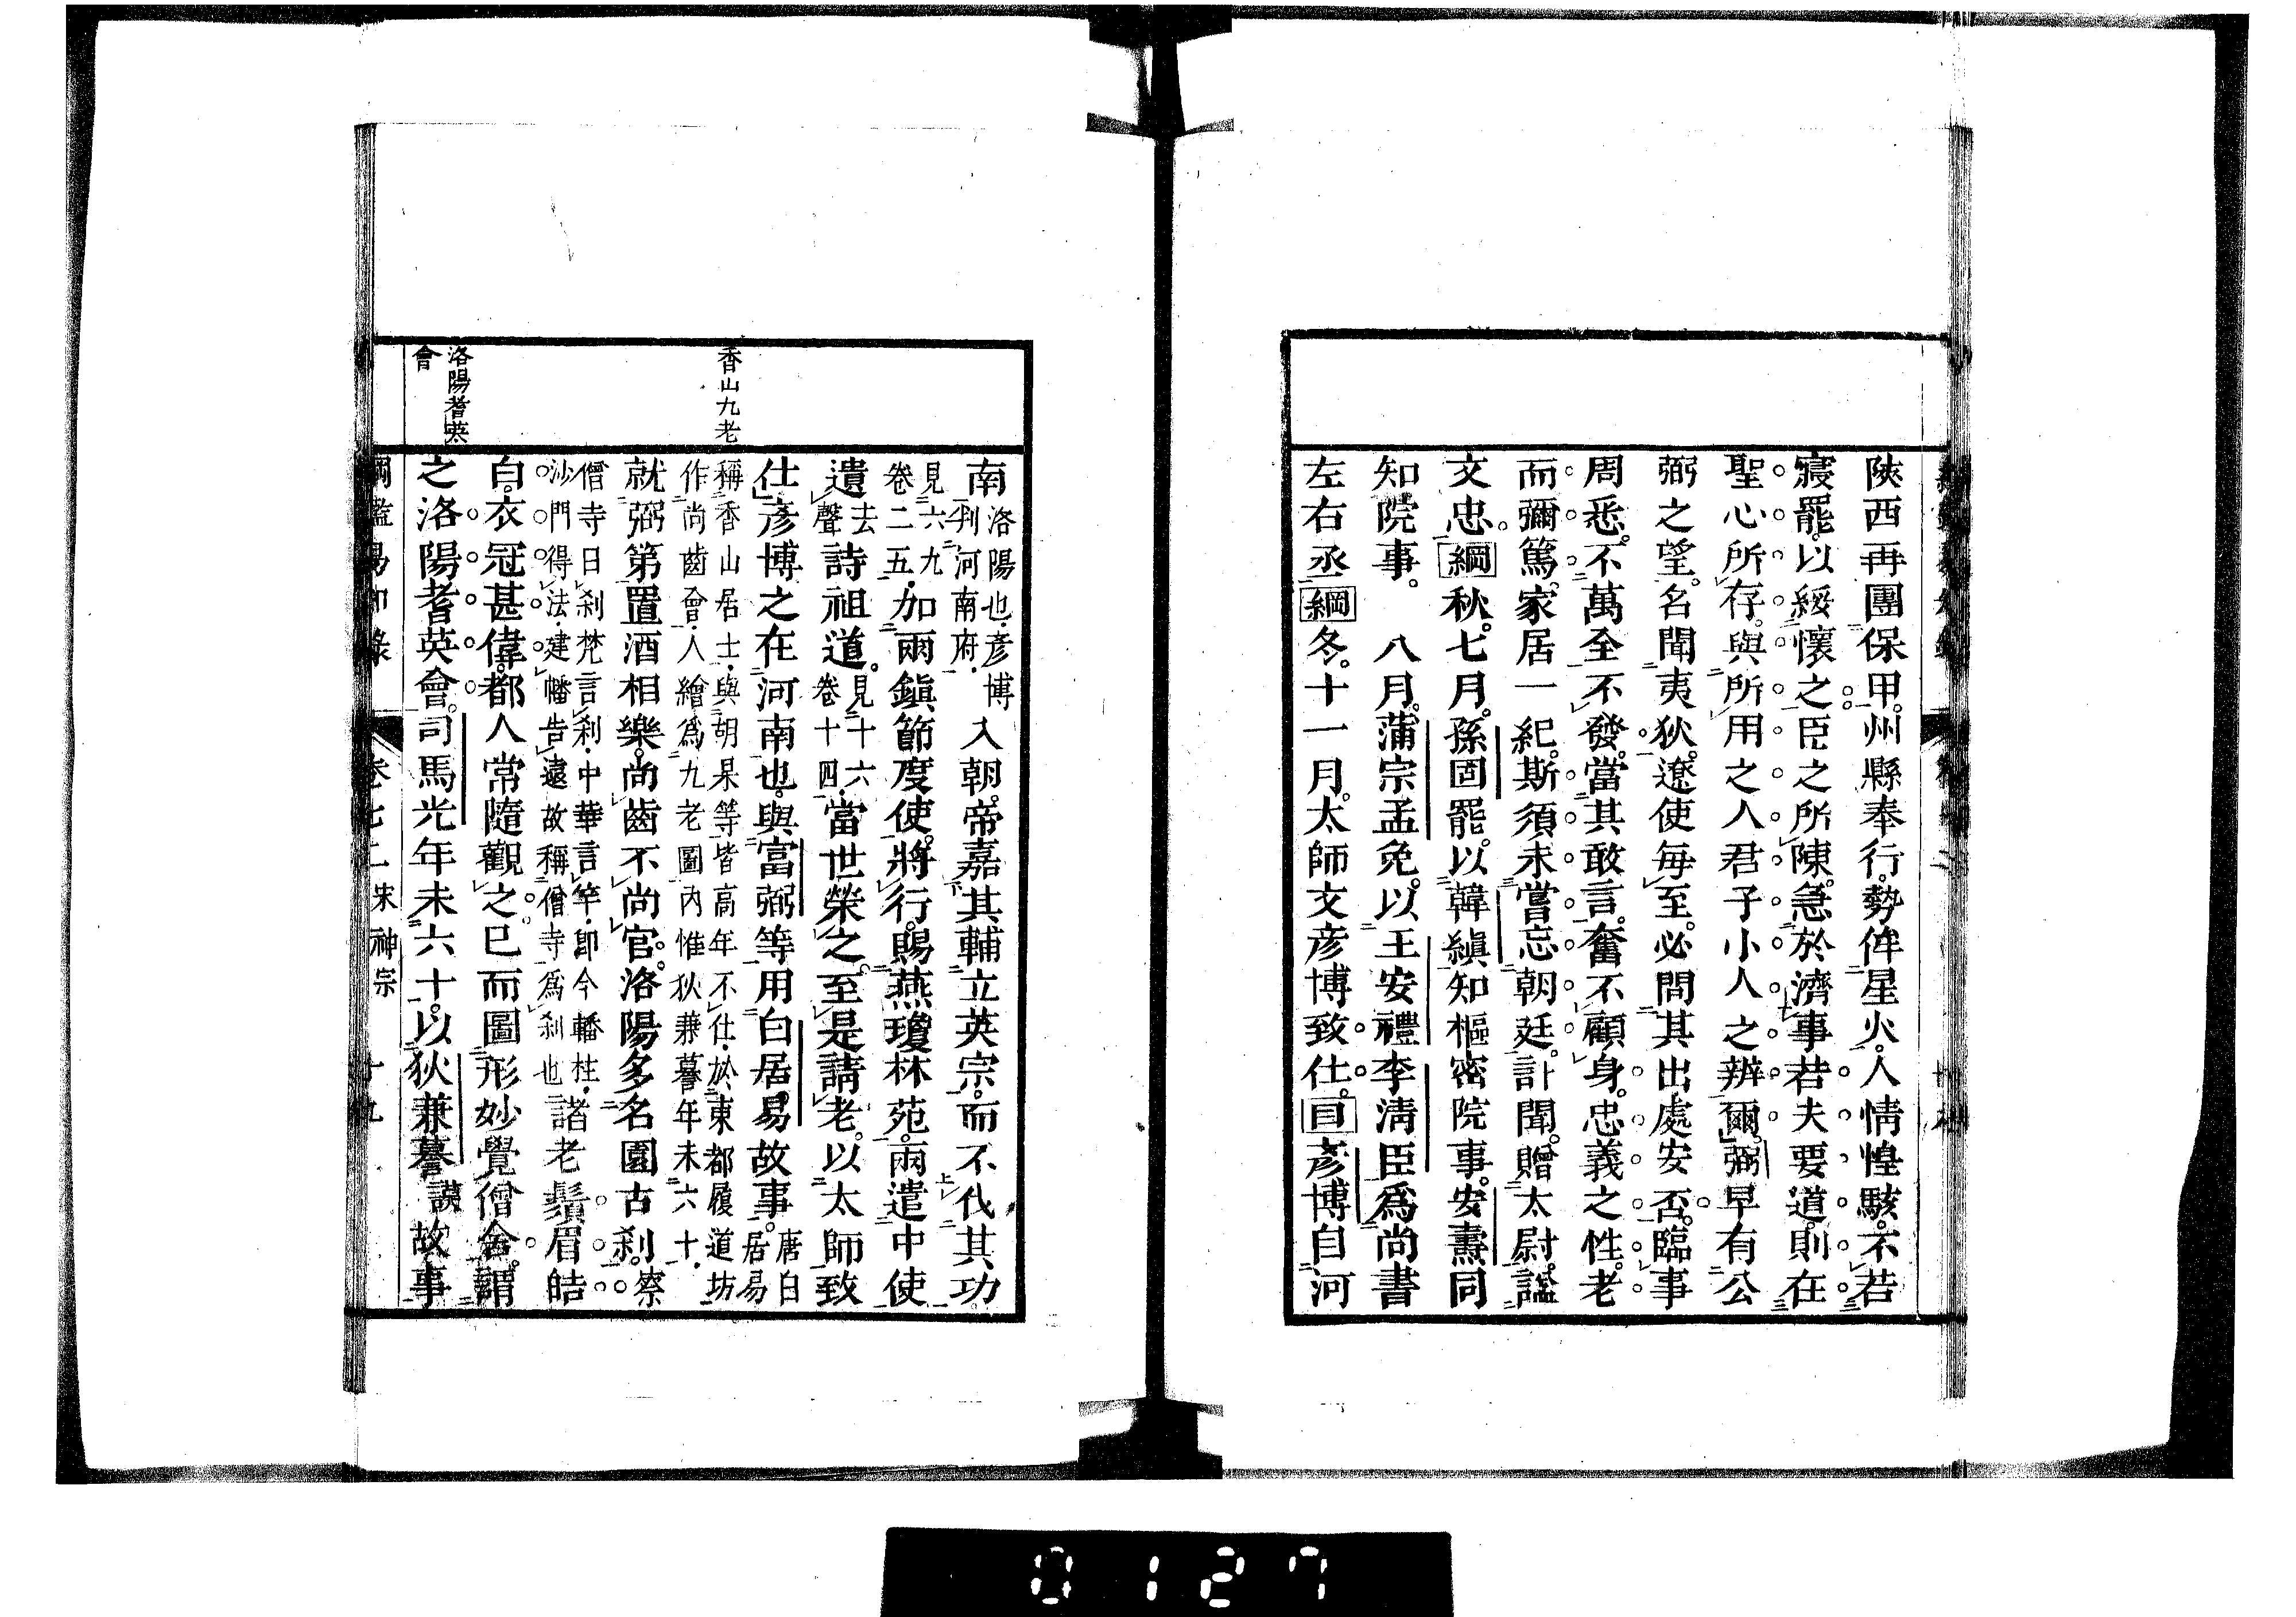 陝西再團保甲。州縣奉行。勢侔星火。人情惶駭。不若
寢罷。以綏懷之。臣之所陳。急於濟事。若夫要道。則在
聖心所存。與所用之人君子小人之辨爾。」弼早有公
弼之望。名聞夷狄。遼使每至。必問其出處安否。臨事
周悉。不萬全不發。當其敢言。奮不顧身。忠義之性。老
而彌篤。家居一紀。斯須未嘗忘朝廷。訃聞。贈太尉。謚
文忠。綱秋。七月。孫固罷。以韓縝知樞密院事。安燾同
知院事。 八月。蒲宗孟免。以王安禮李清臣爲尚書
左右丞 綱冬。十一月。太師文彥博致仕。目彥博自河
香山九老
洛陽耆英
會
南洛陽也·彥博
判河南府·
入朝。帝嘉其輔立英宗。而不伐其功
見六九
卷二五·
加兩鎮節度使。將行。賜燕瓊林苑。兩遣中使
遺去
聲
詩祖道。見十六
卷十四·
當世榮之。至是請老。以太師致
仕」彥博之在河南也。與富弼等用白居易故事。唐白
居易
稱香山居士·與胡杲等皆高年不仕·於東都履道坊
作尚齒會·人繪爲九老圖內惟狄兼謩年未六十·
就弼第置酒相樂。尚齒不尚官。洛陽多名園古刹。察
僧寺日刹梵言刹·中華言竿·即今轓柱·
沙門得法·建幡告遠故稱僧寺爲刹也
諸老鬚眉皓
白。衣冠甚偉。都人常隨觀之已而圖形妙覺僧舍。謂
之洛陽耆英會。司馬光年未六十。以狄兼謩謨故事
綱鑑易知錄 卷七二 宋神宗 十九
0127